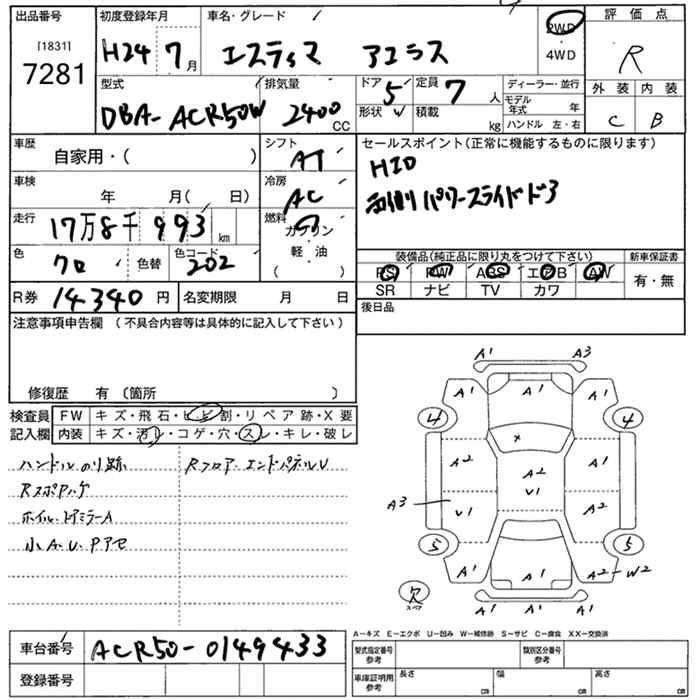 出品番号 初度登録年月 車名・グレード 評価点
[1831]
7281
H24 7月 エスティマ アエラス 2WD・4WD R
型式 排気量 ドア 5 定員 7人 ディーラー・並行 外装 内装
DBA-ACR50W 2400CC 形状 W 積載 kg モデル年式 年 C B
ハンドル 左・右
車歴 シフト セールスポイント(正常に機能するものに限ります)
自家用・( ) AT HID
車検 冷房 両側パワースライドドア
年 月( 日) AC
走行 燃料
17万8千993km ガソリン・軽・油( )
色 色替 色コード 装備品(純正品に限り丸をつけて下さい) 新車保証書
クロ 202 PS PW ABS エアB AW 有・無
SR ナビ TV カワ
R券 14340円 名変期限 月 日 後日品
注意事項申告欄 (不具合内容等は具体的に記入して下さい)
修復歴 有 〔箇所 〕
検査員 FW キズ・飛石・ヒビ割・リペア跡・X要
記入欄 内装 キズ・汚レ・コゲ・穴・スレ・キレ・破レ
ハンドルのり跡 Rフロア・エンドパネルU
Rスポアハゲ
ホイル・ドアミラーA
小A.U.Pアセ
A1 A3
A1 A1 A1
4 4
×
A2 A2 A1
V1
A3 V1 A2
5 5
A1 A1 A2-W2
欠 スペア A1 A1 A1
A-キズ E-エクボ U-凹み W-補修跡 S-サビ C-腐食 XX-交換済
車台番号 ACR50-0149433 型式指定番号 参考 類別区分番号 参考
登録番号 車庫証明用 参考 長さ cm 幅 cm 高さ cm